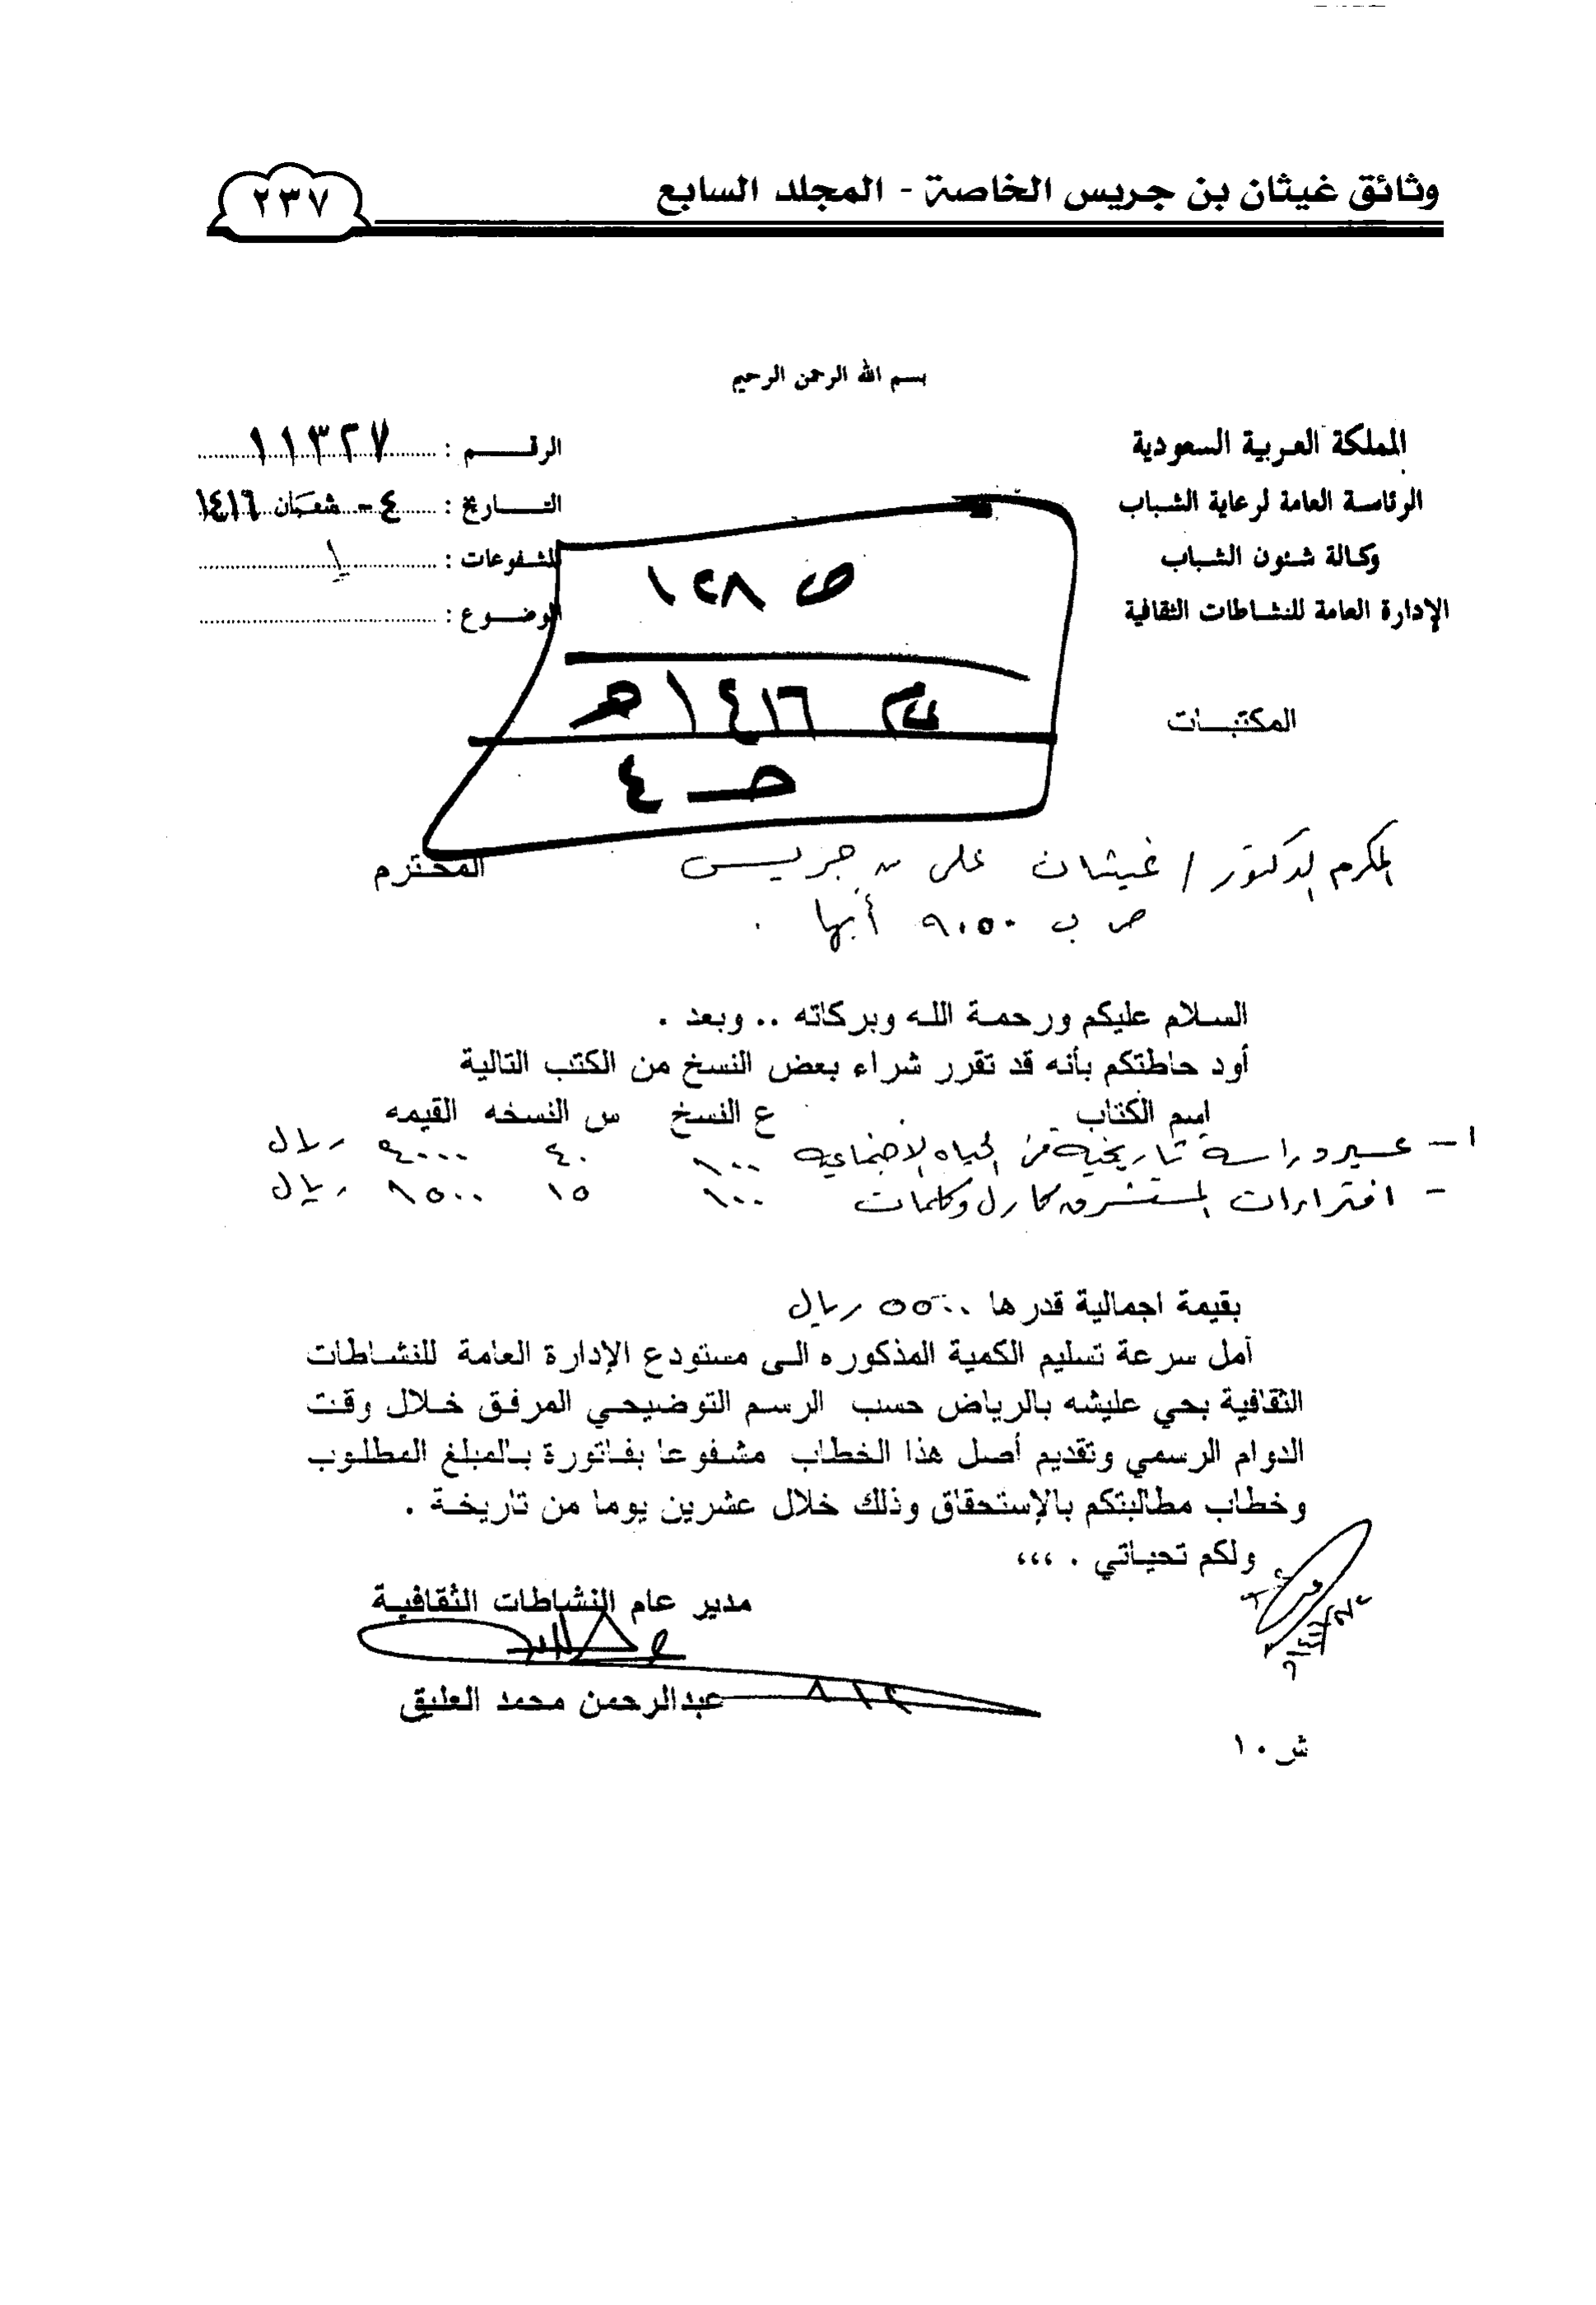 وثائق غيثان بن جريس الخاصة - المجلد السابع
٢٣٧
بسم الله الرحمن الرحيم
المملكة العربية السعودية
الرئاسة العامة لرعاية الشباب
وكالة شئون الشباب
الإدارة العامة للنشاطات الثقافية
المكتبات
الرقم : ١١٣٢٧
التاريخ : ٤ - شعبان ١٤١٦
المشفوعات : ١
الموضوع :
ص ١٢٨
١٤١٦ هـ
حـ ٤
المكرم الدكتور / غيثان علي بن جريس المحترم
ص ب ٩٠٥٠ أبها .
السلام عليكم ورحمة الله وبركاته .. وبعد .
أود حاطتكم بأنه قد تقرر شراء بعض النسخ من الكتب التالية
إسم الكتاب ع النسخ س النسخه القيمه
١ - عسير دراسة تاريخية في الحياه الاجتماعيه ١٠٠ ٤٠ ٤٠٠٠ ريال
- افتراءات المستشرق كارل وكلمات ١٠٠ ١٥ ١٥٠٠ ريال
بقيمة اجمالية قدرها ٥٥٠٠ ريال
أمل سرعة تسليم الكمية المذكوره الى مستودع الإدارة العامة للنشاطات
الثقافية بحي عليشه بالرياض حسب الرسم التوضيحي المرفق خلال وقت
الدوام الرسمي وتقديم أصل هذا الخطاب مشفوعا بفاتورة بالمبلغ المطلوب
وخطاب مطالبتكم بالإستحقاق وذلك خلال عشرين يوما من تاريخة .
ولكم تحياتي . ،،،
مدير عام النشاطات الثقافية
عبدالرحمن محمد العليق
ش ١٠